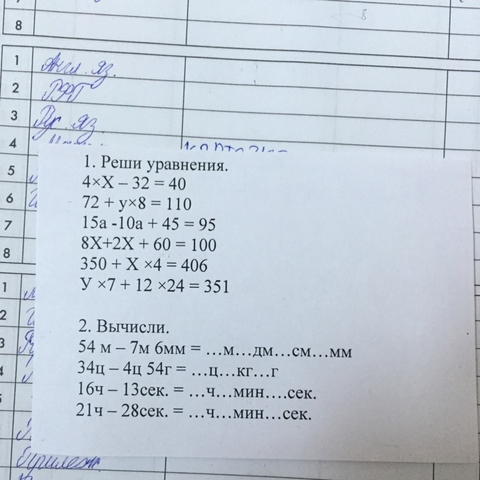 8
1 Англ. яз.
2
3 Рус яз.
4
5
6
7
8
1. Реши уравнения.
4×Х – 32 = 40
72 + у×8 = 110
15а -10а + 45 = 95
8Х+2Х + 60 = 100
350 + Х ×4 = 406
У ×7 + 12 ×24 = 351
2. Вычисли.
54 м – 7м 6мм = …м…дм…см…мм
34ц – 4ц 54г = …ц…кг…г
16ч – 13сек. = …ч…мин….сек.
21ч – 28сек. = …ч…мин…сек.
1
2
3
4
5